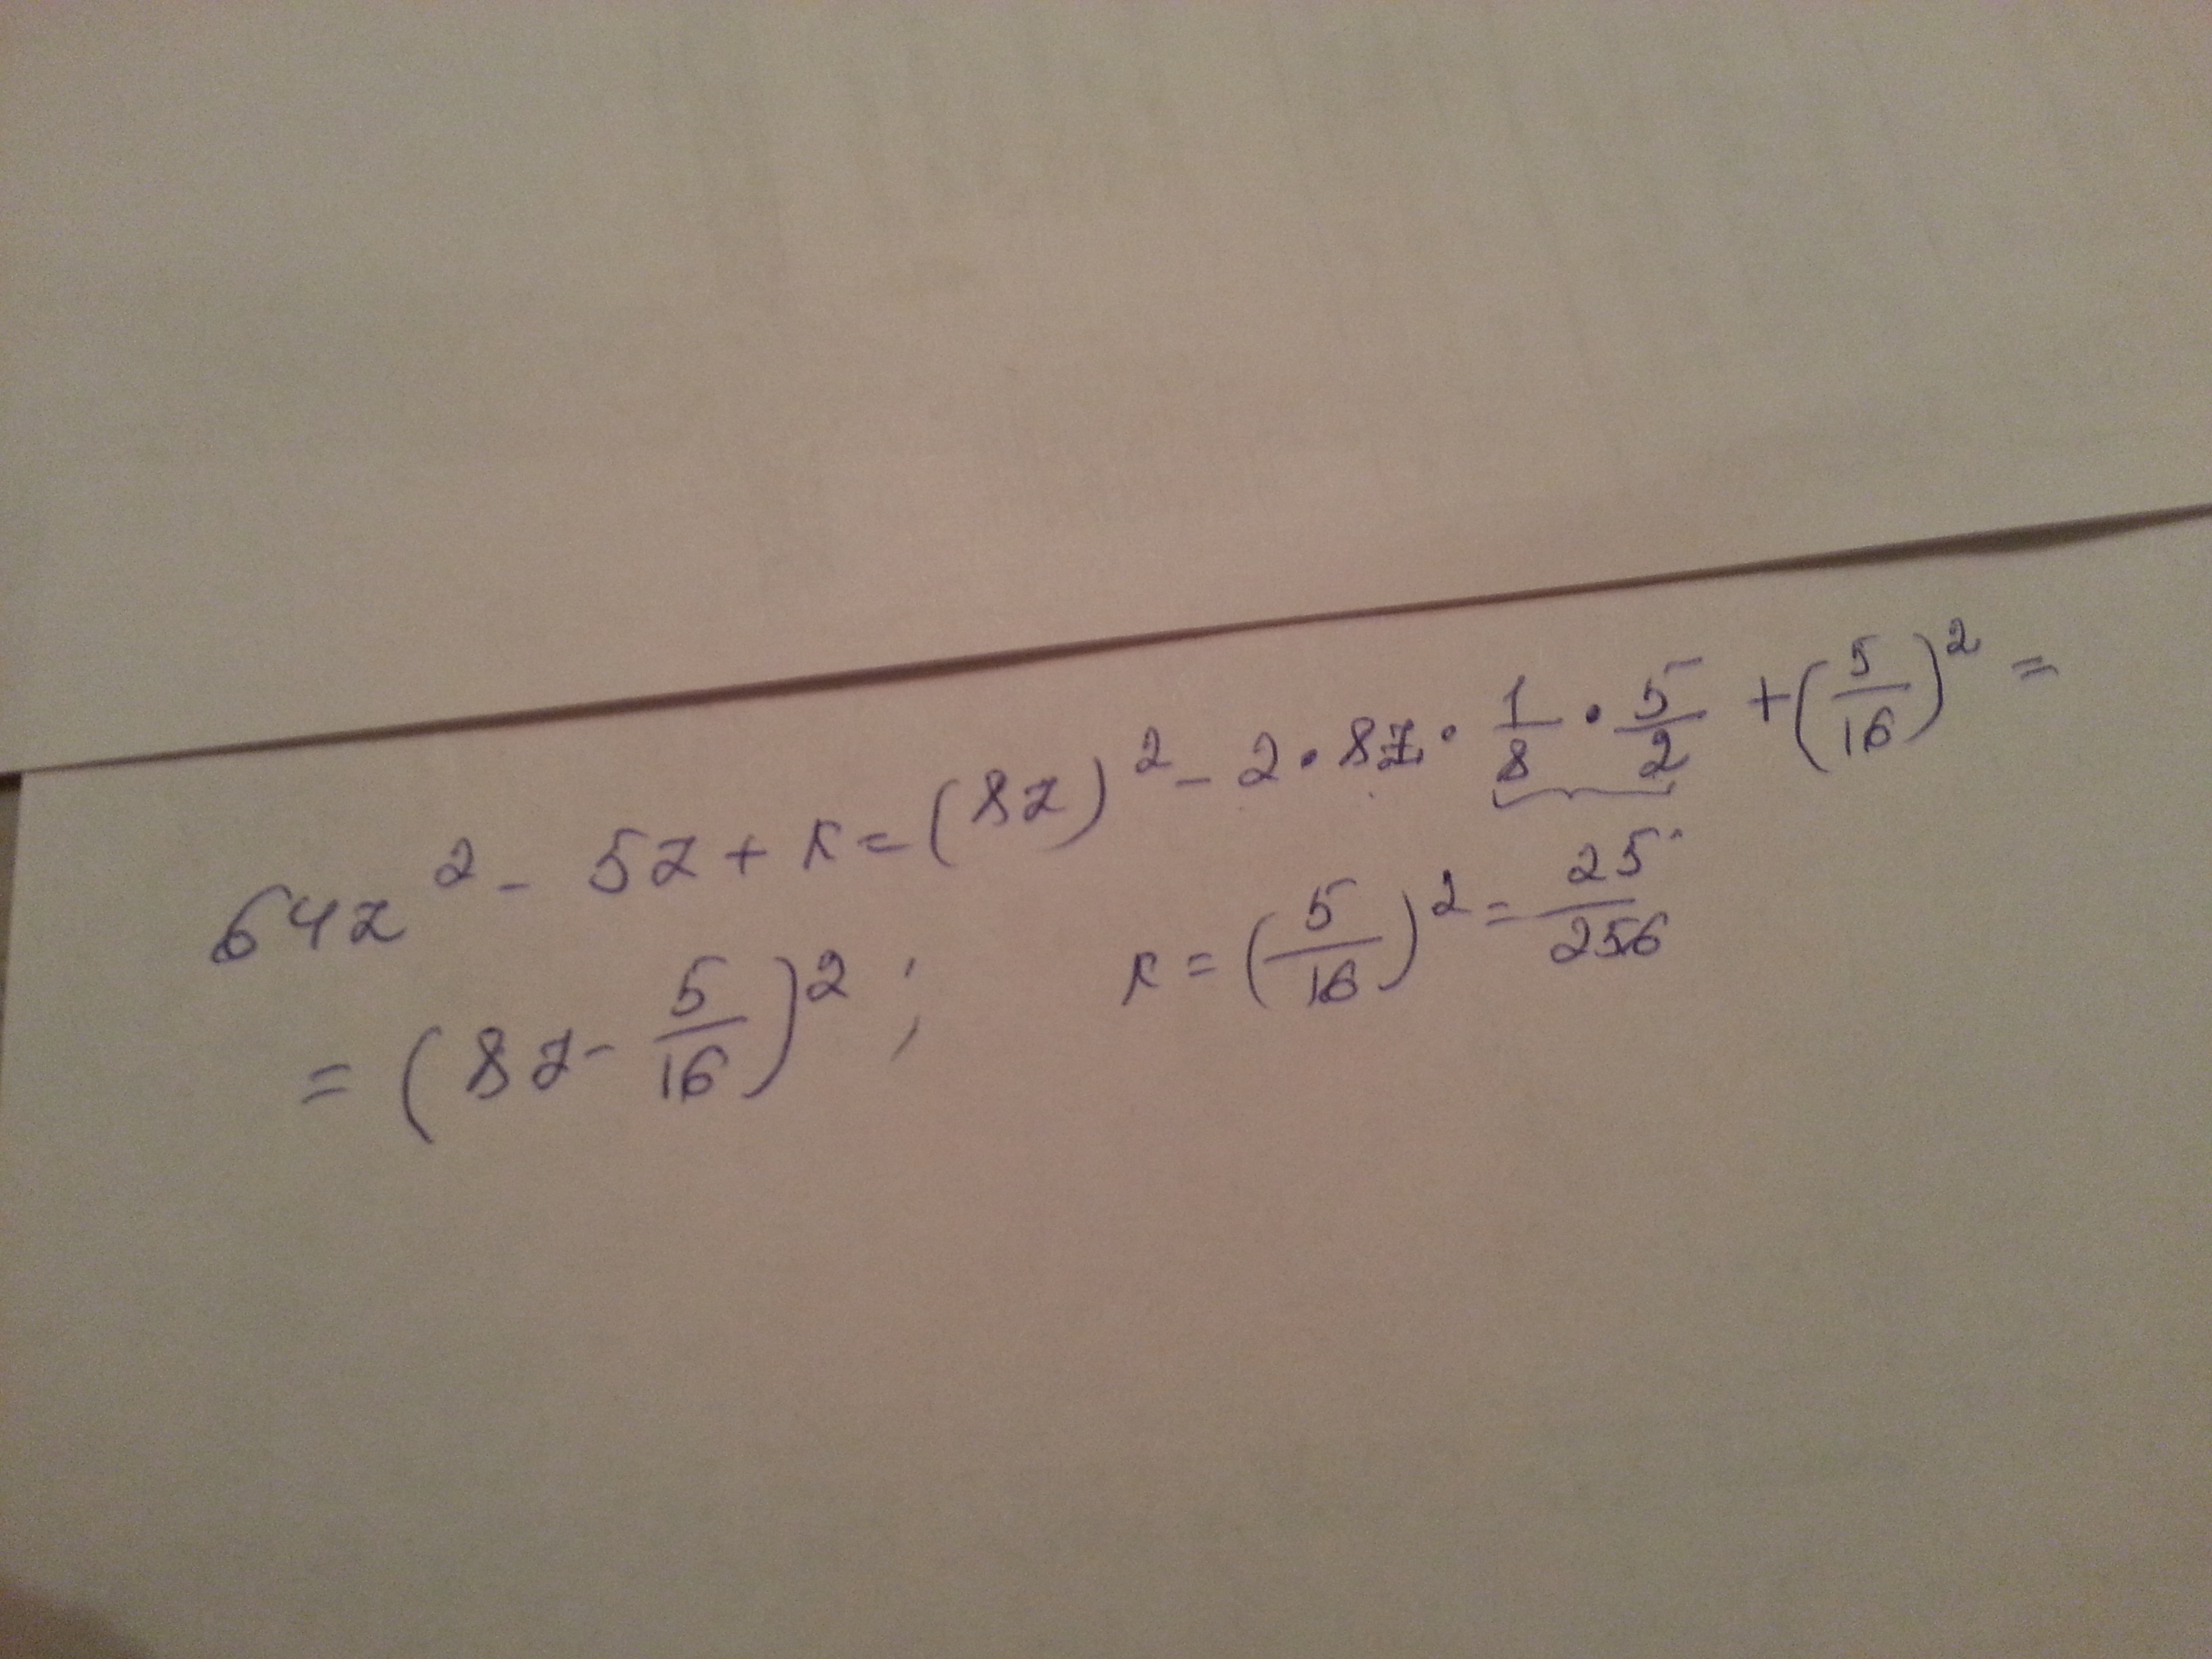 64z² - 5z + к = (8z)² - 2 · 8z · 1/8 · 5/2 + (5/16)² =
= (8z - 5/16)² ; к = (5/16)² = 25/256